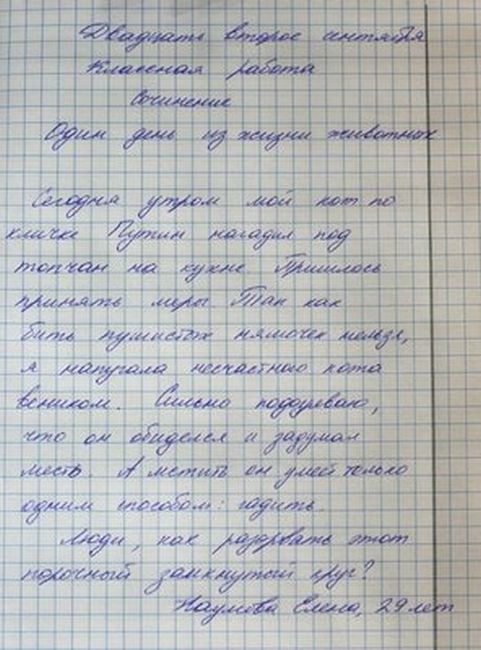 Двадцать второе сентября
Классная работа
Сочинение
Один день из жизни животных
Сегодня утром мой кот по
кличке Путин нагадил под
топчан на кухне. Пришлось
принять меры. Так как
бить пушистых нямочек нельзя,
я напугала несчастного кота
веником. Сильно подозреваю,
что он обиделся и задумал
месть. А мстить он умеет только
одним способом: гадить.
Люди, как разорвать этот
порочный замкнутый круг?
Наумова Елена, 29 лет